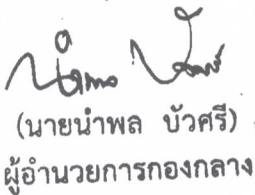 (นายนำพล บัวศรี)
ผู้อำนวยการกองกลาง